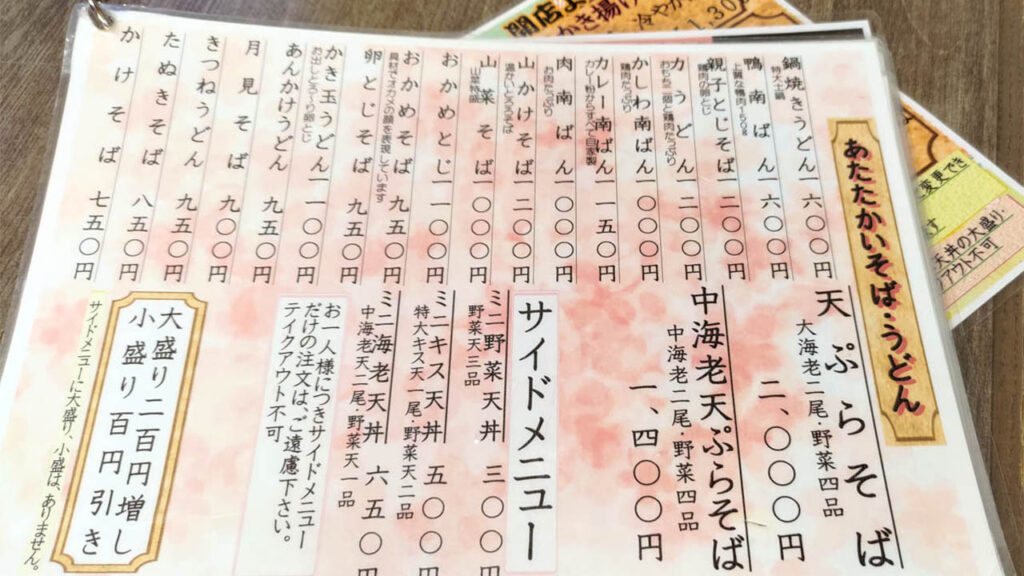 あたたかいそば・うどん
天ぷらそば 二、〇〇〇円
大海老二尾・野菜四品
中海老天ぷらそば 一、四〇〇円
中海老二尾・野菜四品
鍋焼きうどん 一六〇〇円
特大土鍋
鴨南ばん 一六〇〇円
親子とじそば 一二〇〇円
鶏肉の卵とじ
力うどん 一二〇〇円
おもち二個と鶏肉たっぷり
かしわ南ばん 一〇〇〇円
鶏肉たっぷり
カレー南ばん 一一五〇円
カレー粉からすべて自家製
肉南ばん 一〇〇〇円
お肉たっぷり
山かけそば 一二〇〇円
温かいとろろそば
山菜そば 一〇〇〇円
おかめとじ 一一〇〇円
おかめそば 九五〇円
具材でオカメの顔を表現しています
卵とじそば 九五〇円
かき玉うどん 一一〇〇円
お出しとろ〜り卵とじ
あんかけうどん 一一〇〇円
月見そば 九〇〇円
きつねうどん 九五〇円
たぬきそば 八五〇円
かけそば 七五〇円
サイドメニュー
ミニ野菜天丼 三〇〇円
野菜天三品
ミニキス天丼 五〇〇円
特大キス天一尾・野菜天二品
ミニ海老天丼 六五〇円
中海老天二尾・野菜天一品
お一人様につきサイドメニュー
だけの注文は、ご遠慮下さい。
テイクアウト不可
大盛り二百円増し
小盛り百円引き
サイドメニューに大盛り、小盛は、ありません。
かき揚げ
変更でき
天丼の大盛り
アウト不可